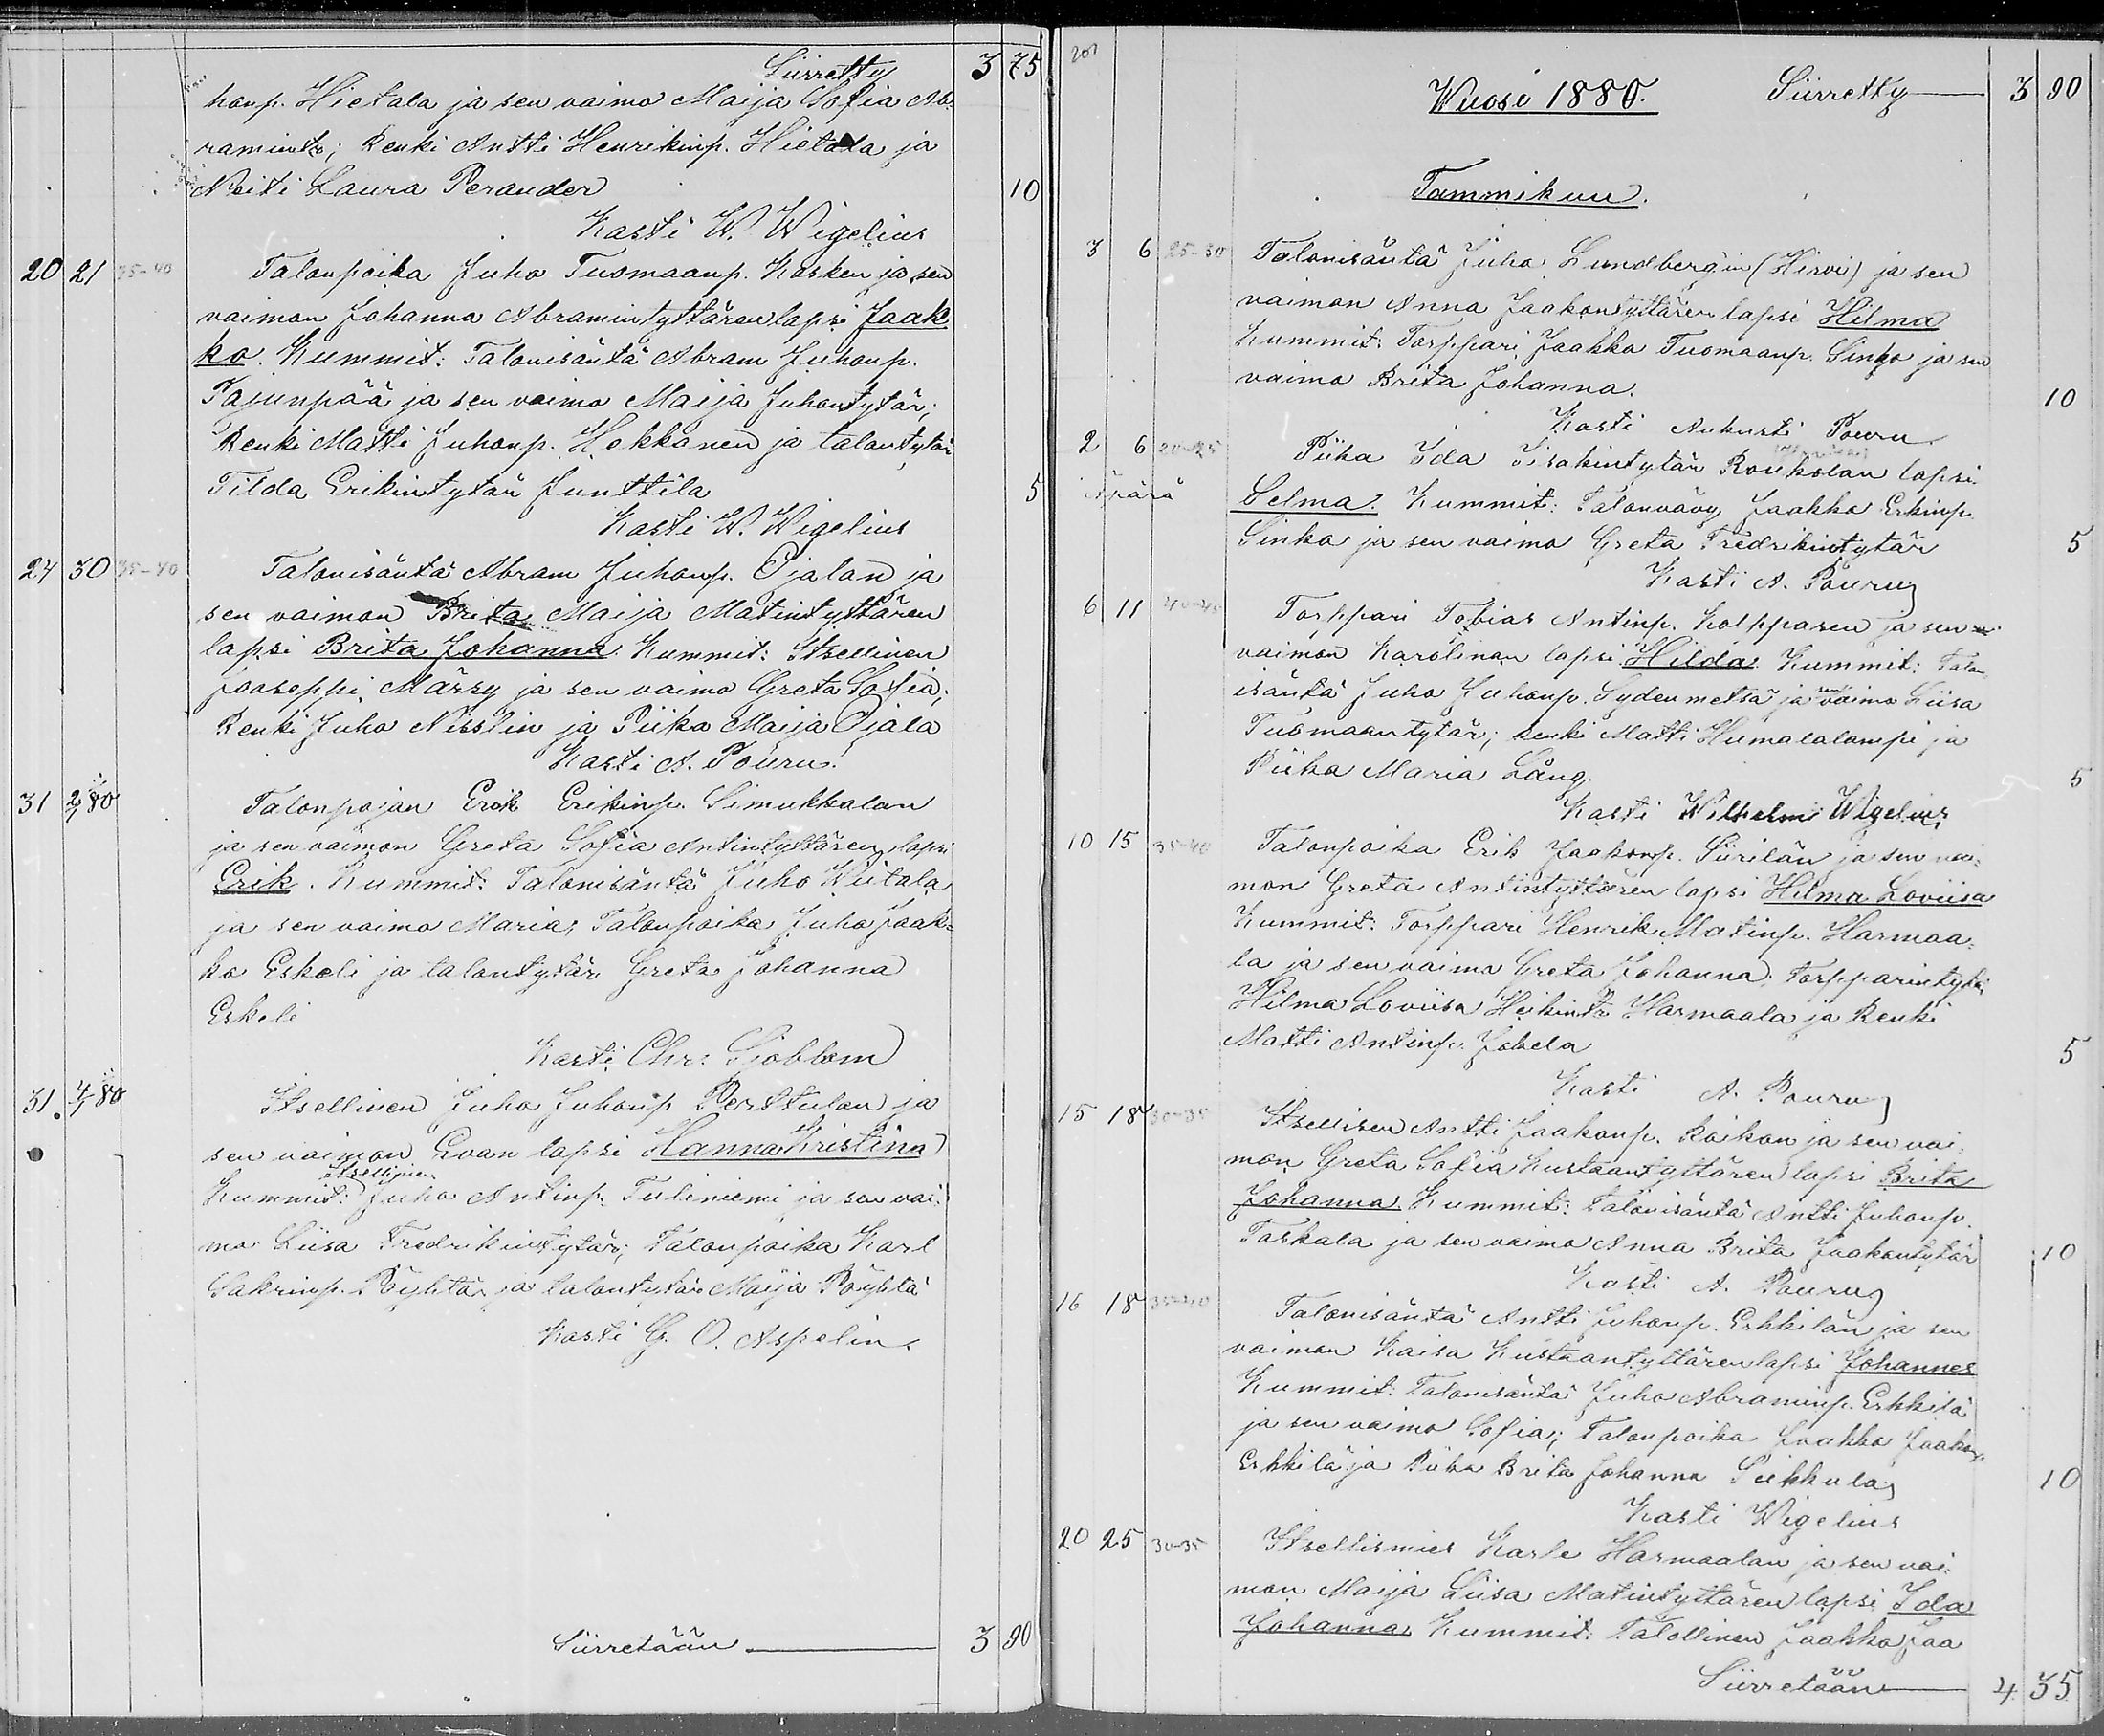 Siirretty 3 75
honp. Hietala ja sen vaimo Maija Sofia Ab-
ramintr; Renki Antti Henrikinp. Hietala ja
Neiti Laura Perander 10
Kasti W. Wigelius
20 21 35-40 Talonpoika Juho Tuomaanp. Kosken ja sen
vaimon Johanna Abramintyttären lapsi Jaak
ko. Kummit: Talonisäntä Abram Juhonp.
Pajunpää ja sen vaimo Maija Juhontytär;
Renki Matti Juhonp. Hokkanen ja talontytär
Tilda Erikintytär Junttila 5
Kasti W. Wigelius
24 30 35-40 Talonisäntä Abram Juhonp. Ojalan ja
sen vaimon Brita Maija Matintyttären
lapsi Brita Johanna. Kummit: Itsellinen
Jooseppi Märsy ja sen vaimo Greta Sofia;
Renki Juho Nisslin ja Piika Maija Ojala
Kasti A. Pouru.
31 2/1 80 Talonpojan Erik Erikinp. Simukkalan
ja sen vaimon Greta Sofia Antintyttären lapsi
Erik. Kummit: Talonisäntä Juho Wiitala
ja sen vaimo Maria; Talonpoika Juho Jaak=
ko Eskeli ja talontytär Greta Johanna
Eskeli
Kasti Chr. Sjöblom
31. 4/1 80 Itsellinen Juho Juhonp Perttulan ja
sen vaimon Evan lapsi Hanna Kristina
Kummit: Itsellinen Juho Antinp. Tuliniemi ja sen vai-
mo Liisa Fredrikintytär; Talonpoika Karl
Sakrinp. Pöyhtär ja talontytär Maija Pöyhtä
Kasti G. O. Aspelin.
Siirretään 3 90
201
Wuosi 1880. Siirretty 3 90
Tammikuu.
3 6 25-30 Talonisäntä Juho Lundberg'in (Hirvi) ja sen
vaimon Anna Jaakontyttären lapsi Hilma
Kummit: Torppari Jaakko Tuomaanp. Sinko ja sen
vaimo Brita Johanna. 10
Kasti Aukusti Pouru
2 6 20-25 Piika Ida Iisakintytär Roukolan lapsi
Äpärä Selma. Kummit: Talonvävy Jaakko Erkinp.
Sinko ja sen vaimo Greta Fredrikintytär 5
Kasti A. Pouru
6 11 40-45 Torppari Tobias Antinp. Kolpparen ja sen
vaimon Karolinan lapsi Hilda Kummit: Talon
isäntä Juho Juhonp. Sydenmetsä ja sen vaimo Liisa
Tuomaantytär; renki Matti Humalalampi ja
Piika Maria Lång. 5
Kasti Wilhelmi Wigelius
10 15 35-40 Talonpoika Erik Jaakonp. Siirilän ja sen vai-
mon Greta Antintyttären lapsi Hilma Loviisa
Kummit: Torppari Henrik Matinp. Harmaa=
la ja sen vaimo Greta Johanna; Torpparintytär
Hilma Loviisa Heikintr Harmaala ja Renki
Matti Antinp. Jokela 5
Kasti A. Pouru
15 18 30-35 Itsellisen Antti Jaakonp. Koikon ja sen vai-
mon Greta Sofia Kustaantyttären lapsi Brita
Johanna. Kummit: Talonisäntä Antti Juhonp.
Taskala ja sen vaimo Anna Brita Jaakontytär 10
Kasti A. Pouru
16 18 35-40 Talonisäntä Antti Juhonp. Erkkilän ja sen
vaimon Kaisa Kustaantyttären lapsi Johannes
Kummit: Talonisäntä Juho Abraminp. Erkkilä
ja sen vaimo Sofia; Talonpoika Jaakko Jaakonp.
Erkkilä ja Piika Brita Johanna Piikkula 10
Kasti Wigelius
20 25 30-35 Itsellismies Karle Harmaalan ja sen vai-
mon Maija Liisa Matintyttären lapsi Ida
Johanna Kummit: Talollinen Jaakko Jaa
Siirretään 4 35